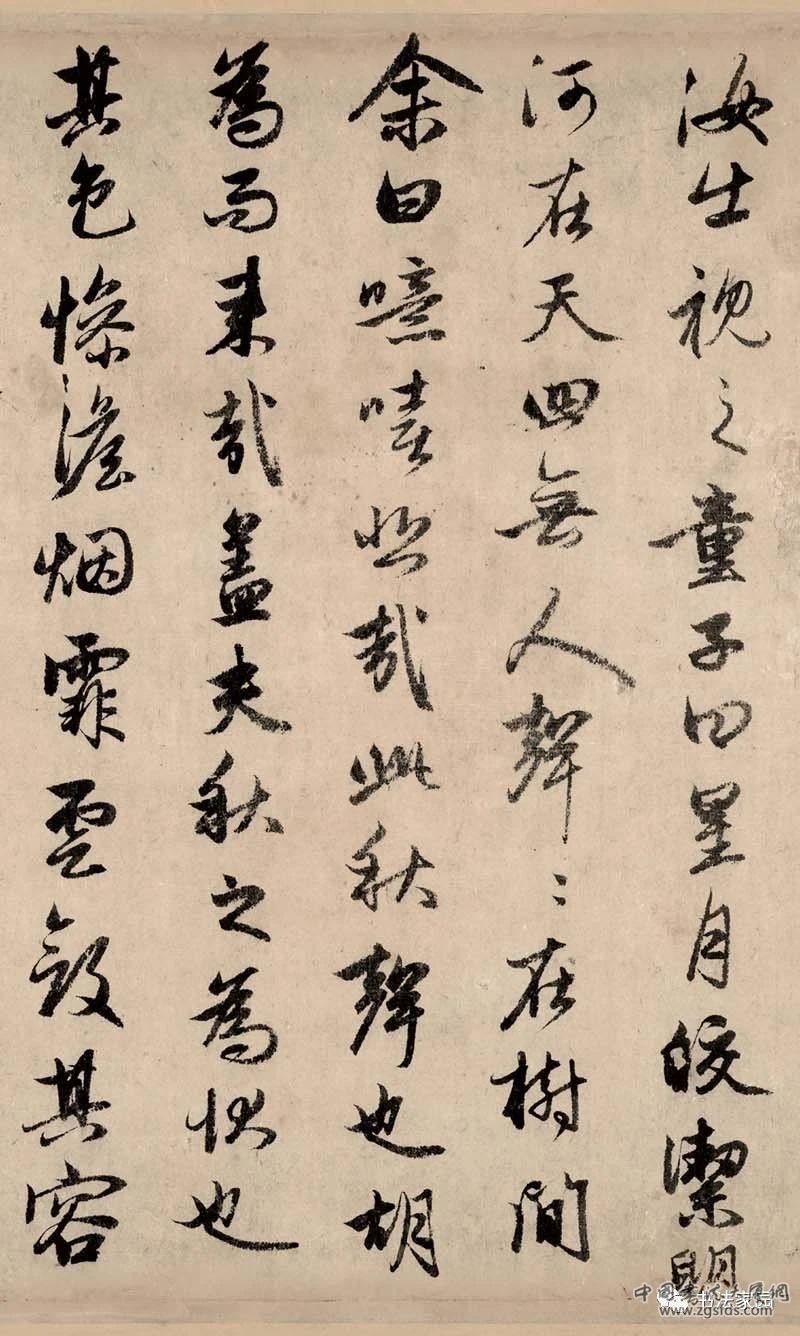 汝出視之童子曰星月皎潔明
河在天四無人聲〻在樹間
余曰噫嘻悲哉此秋聲也胡
為而来哉盖夫秋之為狀也
其色慘澹烟霏雲斂其容
书法家园
www.zgsfds.com